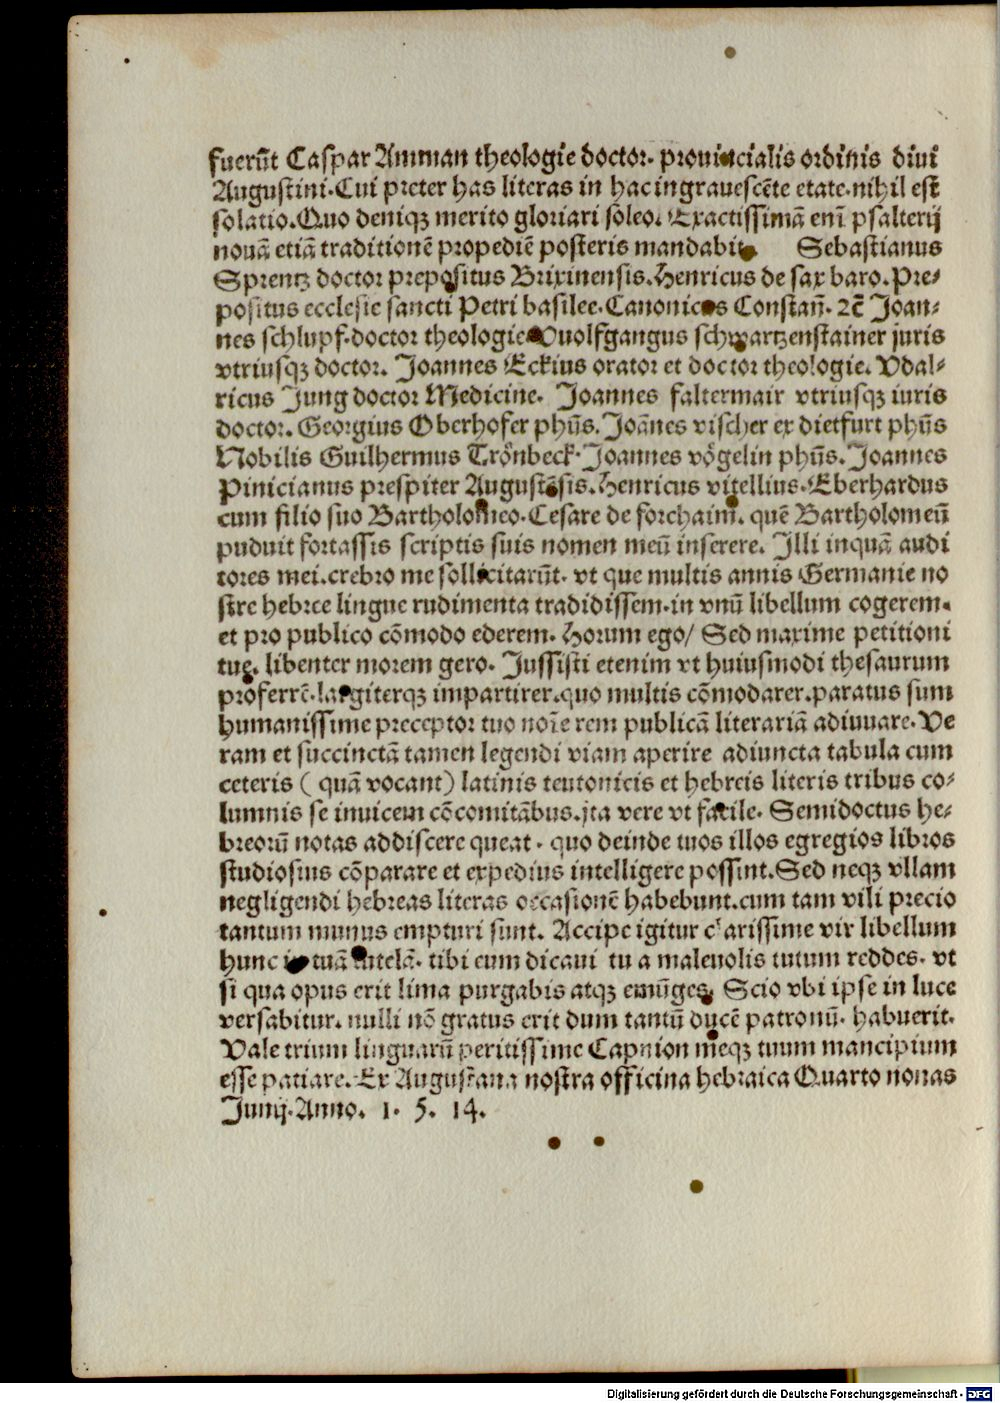 fuerūt Caspar Amman theologie doctor. prouincialis ordinis diui
Augustini. Cui preter has literas in hac ingrauescēte etate. nihil est
solatio. Quo deniqꝫ merito gloriari soleo. Exactissimā eni̅ psalterij
nouā etiā traditionē propediē posteris mandabit. Sebastianus
Sprentz doctor prepositus Brixinensis. Henricus de sax baro. Pre-
positus ecclesie sancti Petri basilee. Canonicus Constan̅. ⁊c̄ Joan-
nes schlupf. doctor theologie Vuolfgangus schwartzenstainer juris
vtriusqꝫ doctor. Joannes Eckius orator et doctor theologie. Vdal-
ricus Jung doctor Medicine. Joannes faltermair vtriusqꝫ iuris
doctor. Georgius Oberhofer phūs. Joānes vischer ex dietfurt phūs
Nobilis Guilhermus Trönbeck. Joannes vögelin phūs. Joannes
Pinicianus prespiter Augustēsis. Henricus vitellius. Eberhardus
cum filio suo Bartholomeo. Cesare de forchaim. quē Bartholomeū
puduit fortassis scriptis suis nomen meū inserere. Illi inquā audi
tores mei. crebro me sollicitarūt. vt que multis annis Germanie no
stre hebree lingue rudimenta tradidissem. in vnū libellum cogerem.
et pro publico cōmodo ederem. Horum ego/ Sed maxime petitioni
tue. libenter morem gero. Jussisti etenim vt huiusmodi thesaurum
proferrē. largiterqꝫ impartirer. quo multis cōmodarer. paratus sum
humanissime preceptor tuo noi̅e rem publicā literariā adiuuare. Ve
ram et succinctā tamen legendi viam aperire adiuncta tabula cum
ceteris ( quā vocant) latinis teutonicis et hebreis literis tribus co-
lumnis se inuicem cōcomitābus. jta vere vt facile. Semidoctus he-
breorū notas addiscere queat. quo deinde tuos illos egregios libros
studiosius cōparare et expedius intelligere possint. Sed neqꝫ vllam
negligendi hebreas literas occasionē habebunt. cum tam vili precio
tantum munus empturi sunt. Accipe igitur clarissime vir libellum
hunc in tuā tutelā. tibi eum dicaui tu a maleuolis tutum reddes. vt
si qua opus erit lima purgabis atqꝫ emūges. Scio vbi ipse in luce
versabitur. nulli nō gratus erit dum tantū ducē patronū. habuerit.
Vale trium linguarū peritissime Capnion meqꝫ tuum mancipium
esse patiare. Ex Augustana nostra officina hebraica Quarto nonas
Junij. Anno. 1. 5. 14.
Digitalisierung gefördert durch die Deutsche Forschungsgemeinschaft - DFG